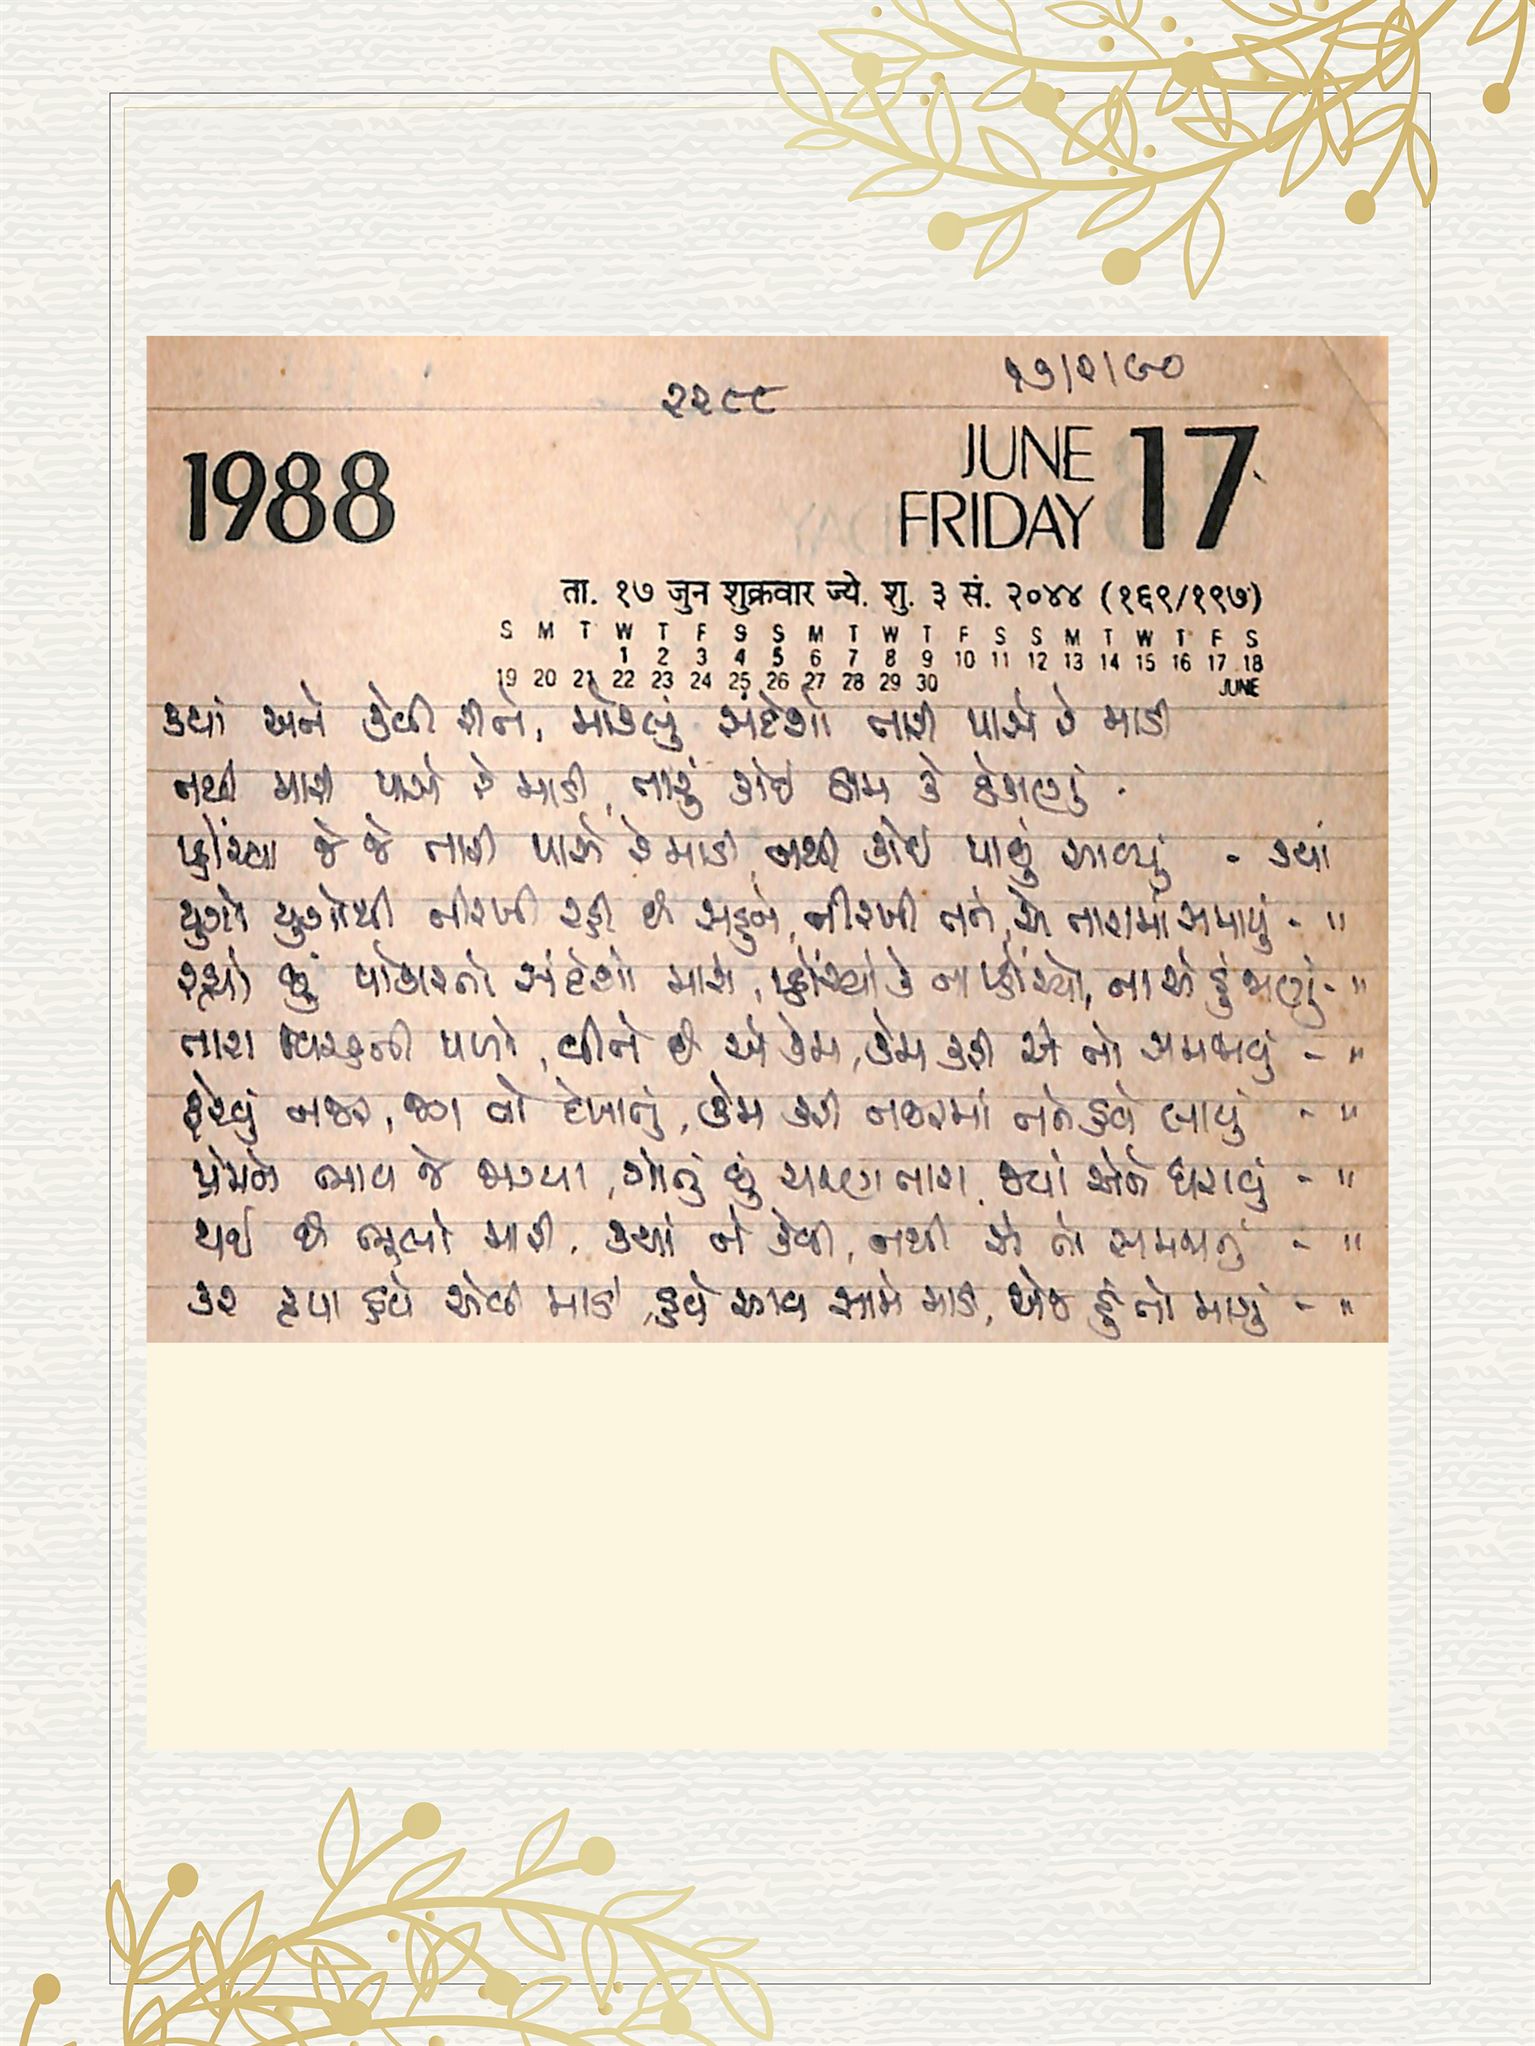 ૨૨૯૯
૧૭/૨/૯૦
1988
JUNE 17
FRIDAY
ता. १७ जुन शुक्रवार ज्ये. शु. ३ सं. २०४४ (१६९/१९७)
S M T W T F S S M T W T F S S M T W T F S
1 2 3 4 5 6 7 8 9 10 11 12 13 14 15 16 17 18
19 20 21 22 23 24 25 26 27 28 29 30 JUNE
ક્યાં અને કેવી રીતે, મોકલું સંદેશો તારી પાસે રે માડી
નથી મારી પાસે રે માડી, તારું કોઈ ઠામ કે ઠેકાણું.
પ્હોંચ્યા જે જે તારી પાસે રે માડી, નથી કોઈ પાછું આવ્યું - ક્યાં
યુગો યુગોથી નીરખી રહી છે સહુને, નીરખી તને, એ તારામાં સમાયું - "
રહ્યો છું પોકારતો સંદેશો મારો, પ્હોંચ્યો કે ના પ્હોંચ્યો, ના એ હું જાણું - "
તારા વિરહની પળો, વીતે છે એ કેમ, કેમ કરી એ તો સમજાવું - "
ફેરવું નજર, જગ તો દેખાતું, કેમ કરી નજરમાં તને હવે લાવું - "
પ્રેમને ભાવ જે જાગ્યા, ગોતું છું ચરણ તારા, ક્યાં એને ધરાવું - "
થઈ છે ભૂલો મારી, ક્યાં ને કેવી, નથી એ તો સમજાતું - "
કર કૃપા હવે એવી માડી, હવે આવ સામે માડી, એજ હું તો માગું - "